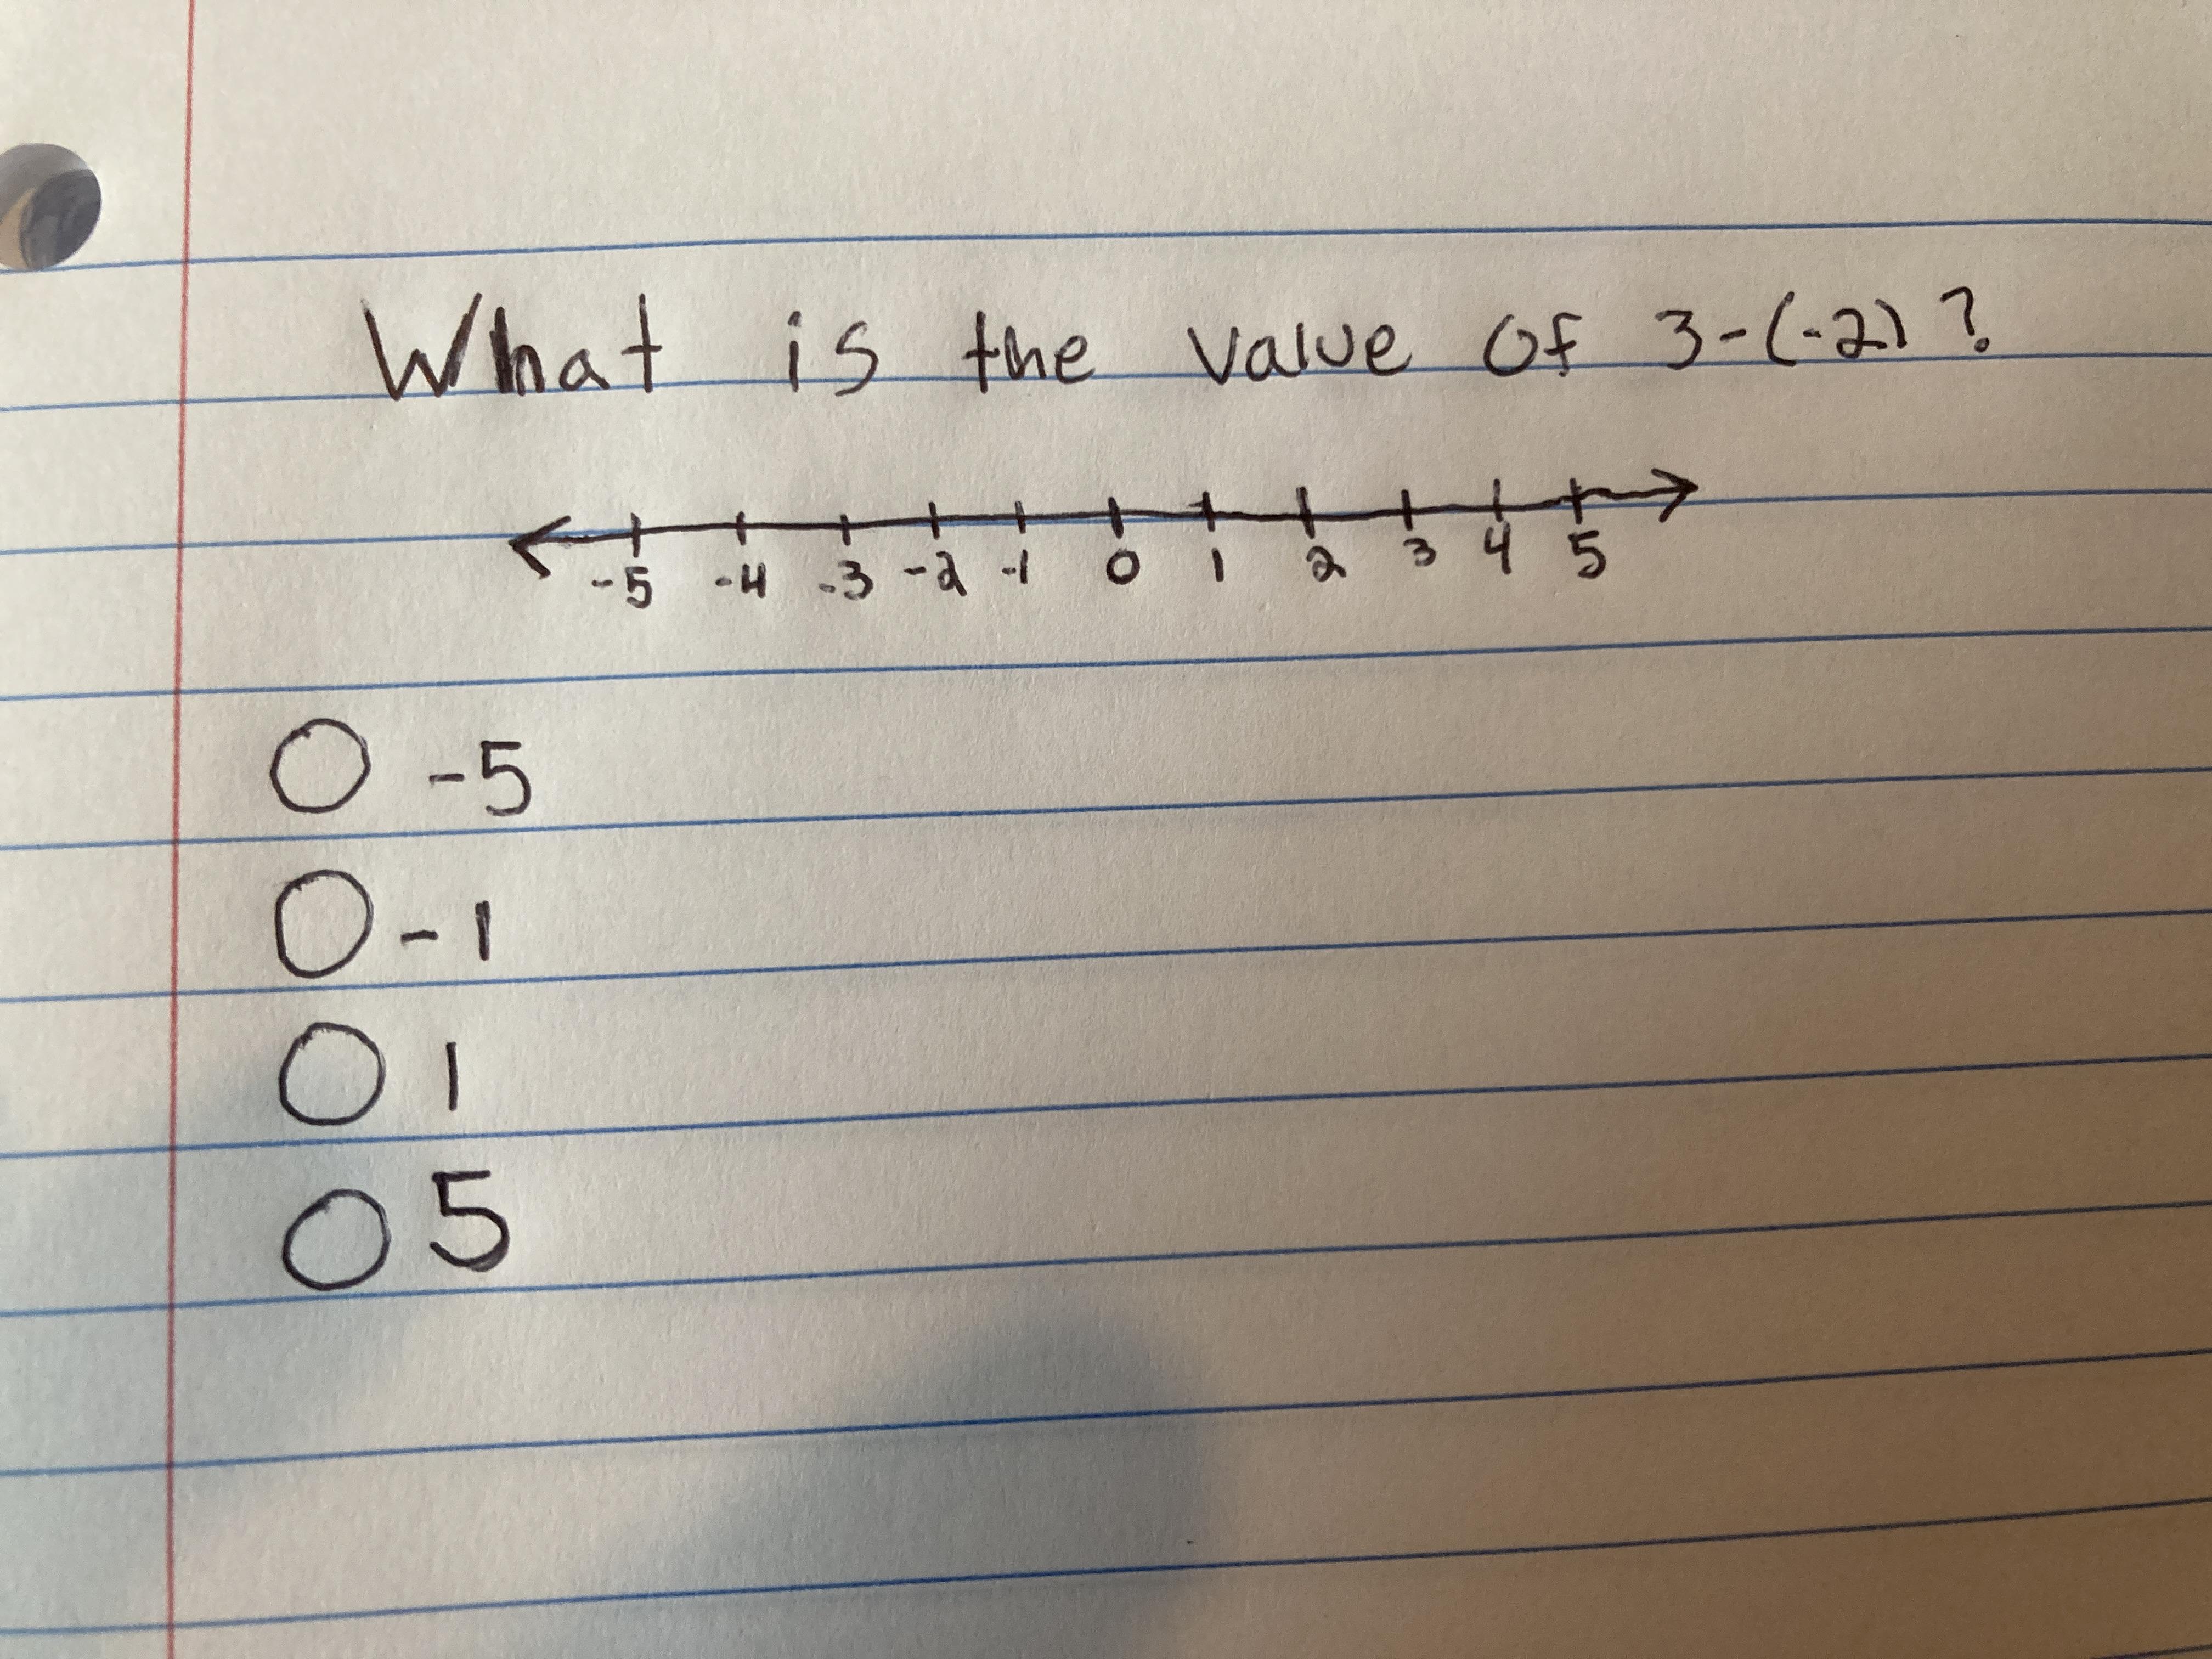 What is the value of 3-(-2)?
-5 -4 -3 -2 -1 0 1 2 3 4 5
-5
-1
1
5